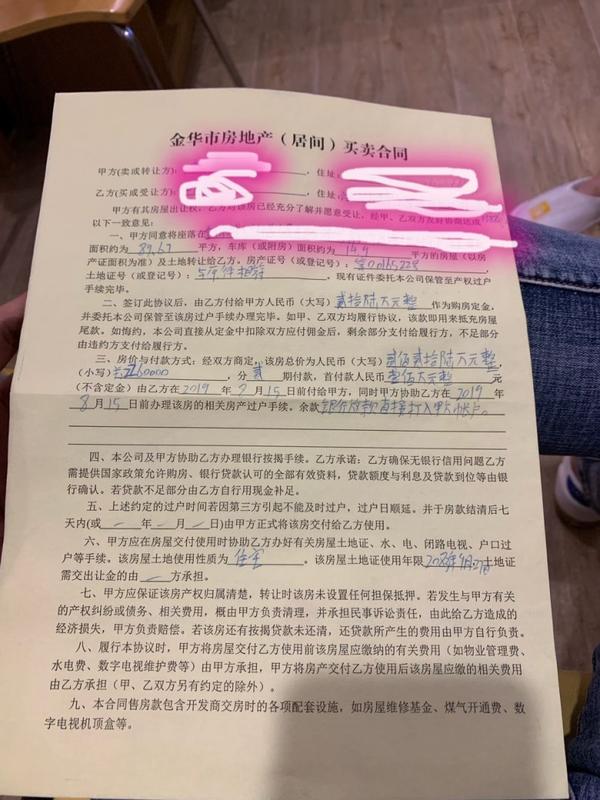 金华市房地产（居间）买卖合同
甲方(卖或转让方)： ，住址：
乙方(买或受让方)： ，住址：
甲方有其房屋出让权，乙方对该房已经充分了解并愿意受让，经甲、乙双方友好协商达成
以下一致意见：
一、甲方同意将座落在
面积约为 89.67 平方，车库（或附房）面积约为 平方的房屋（以房
产证面积为准）及土地转让给乙方，房产证号（或登记号）：
土地证号（或登记号）： ，现有证件委托本公司保管至产权过户
手续完毕。
二、签订此协议后，由乙方付给甲方人民币（大写）贰拾陆万元整 作为购房定金，
并委托本公司保管至该房过户手续办理完毕。如甲、乙双方均履行协议，该款即用来抵充房屋
尾款。如悔约，本公司直接从定金中扣除双方应付佣金后，剩余部分支付给履行方，不足部分
由违约方支付给履行方。
三、房价与付款方式：经双方商定，该房总价为人民币（大写）贰佰贰拾陆万元整，
(小写) 2260000 ，分 贰 期付款，首付款人民币 壹佰万元整 元
(不含定金）由乙方在 2019 年 月 15 日前付给甲方，同时甲方协助乙方在 2019 年
8 月 15 日前办理该房的相关房产过户手续。余款 银行放款直接打入甲方帐户。
四、本公司及甲方协助乙方办理银行按揭手续。乙方承诺：乙方确保无银行信用问题乙方
需提供国家政策允许购房、银行贷款认可的全部有效资料，贷款额度与利息及贷款到位等由银
行确认。若贷款不足部分由乙方自行用现金补足。
五、上述约定的过户时间若因第三方引起不能及时过户，过户日顺延。并于房款结清后七
天内(或 — 年 — 月 — 日)由甲方正式将该房交付给乙方使用。
六、甲方应在房屋交付使用时协助乙方办好有关房屋土地证、水、电、闭路电视、户口过
户等手续。该房屋土地使用性质为 住宅 。该房屋土地证使用年限 土地证
需交出让金的由 — 方承担。
七、甲方应保证该房产权归属清楚，转让时该房未设置任何担保抵押。若发生与甲方有关
的产权纠纷或债务、相关费用，概由甲方负责清理，并承担民事诉讼责任，由此给乙方造成的
经济损失，甲方负责赔偿。若该房还有按揭贷款未还清，还贷款所产生的费用由甲方自行负责。
八、履行本协议时，甲方将房屋交付乙方使用前该房屋应缴纳的有关费用（如物业管理费、
水电费、数字电视维护费等）由甲方承担，甲方将房产交付乙方使用后该房屋应缴的相关费用
由乙方承担（甲、乙双方另有约定的除外）。
九、本合同售房款包含开发商交房时的各项配套设施，如房屋维修基金、煤气开通费、数
字电视机顶盒等。